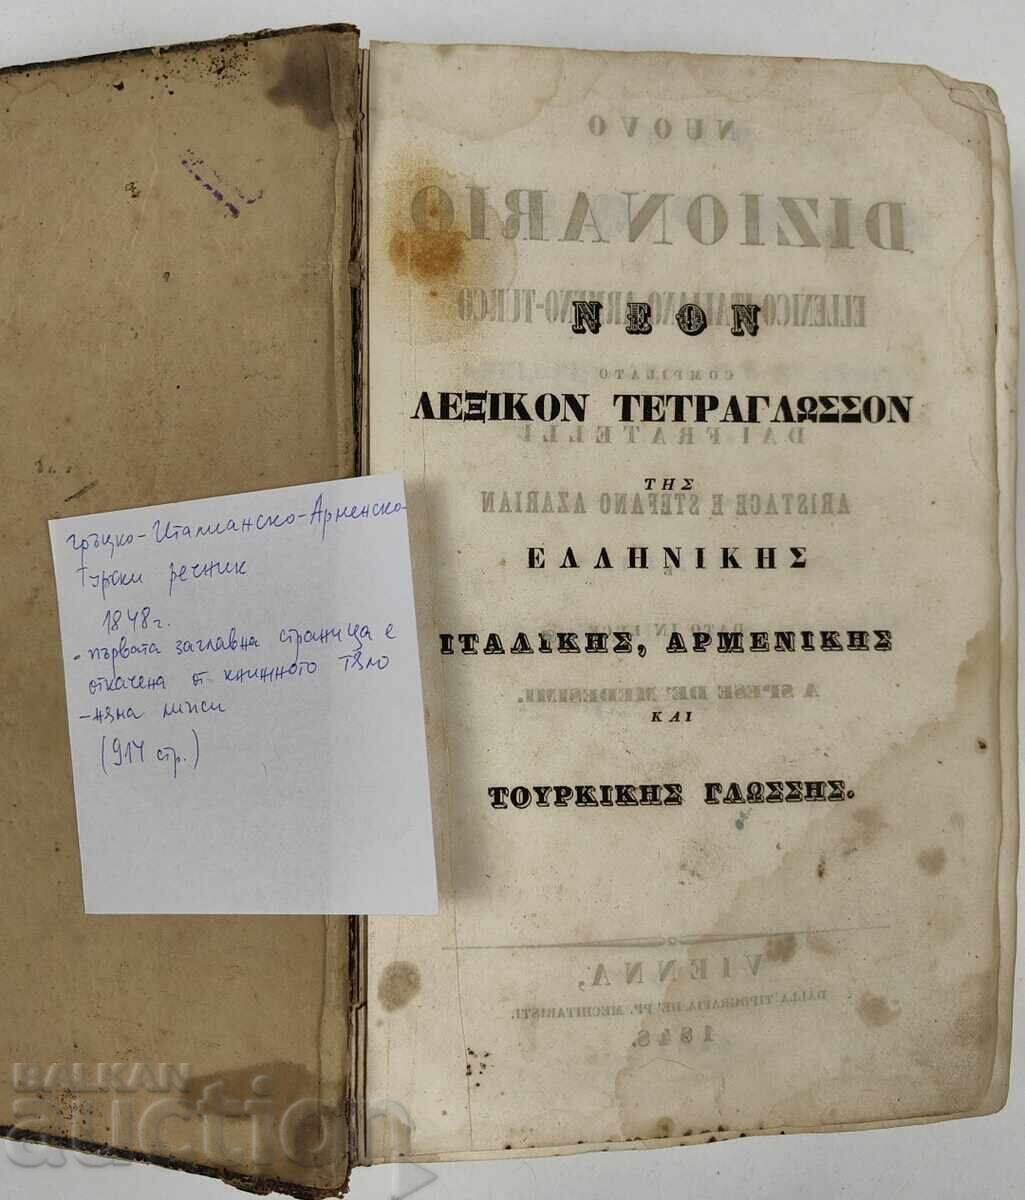 гръцко-Италианско-Арменско-
Турски речник
1848г.
- първата заглавна страница е
откачена от книжното тяло
- няма липси
(914 стр.)
ΝΕΟΝ
ΛΕΞΙΚΟΝ ΤΕΤΡΑΓΛΩΣΣΟΝ
ΤΗΣ
ΕΛΛΗΝΙΚΗΣ
ΙΤΑΛΙΚΗΣ, ΑΡΜΕΝΙΚΗΣ
ΚΑΙ
ΤΟΥΡΚΙΚΗΣ ΓΛΩΣΣΗΣ.
NUOVO
DIZIONARIO
ELLENICO-ITALIANO-ARMENO-TURCO
COMPILATO
DAI FRATELLI
ARISTACE E STEFANO AZARIAN
DATO IN LUCE
A SPESE DE' MEDESIMI.
VIENNA,
DALLA TIPOGRAFIA DE' PP. MECHITARISTI.
1848.
BALKAN
auction